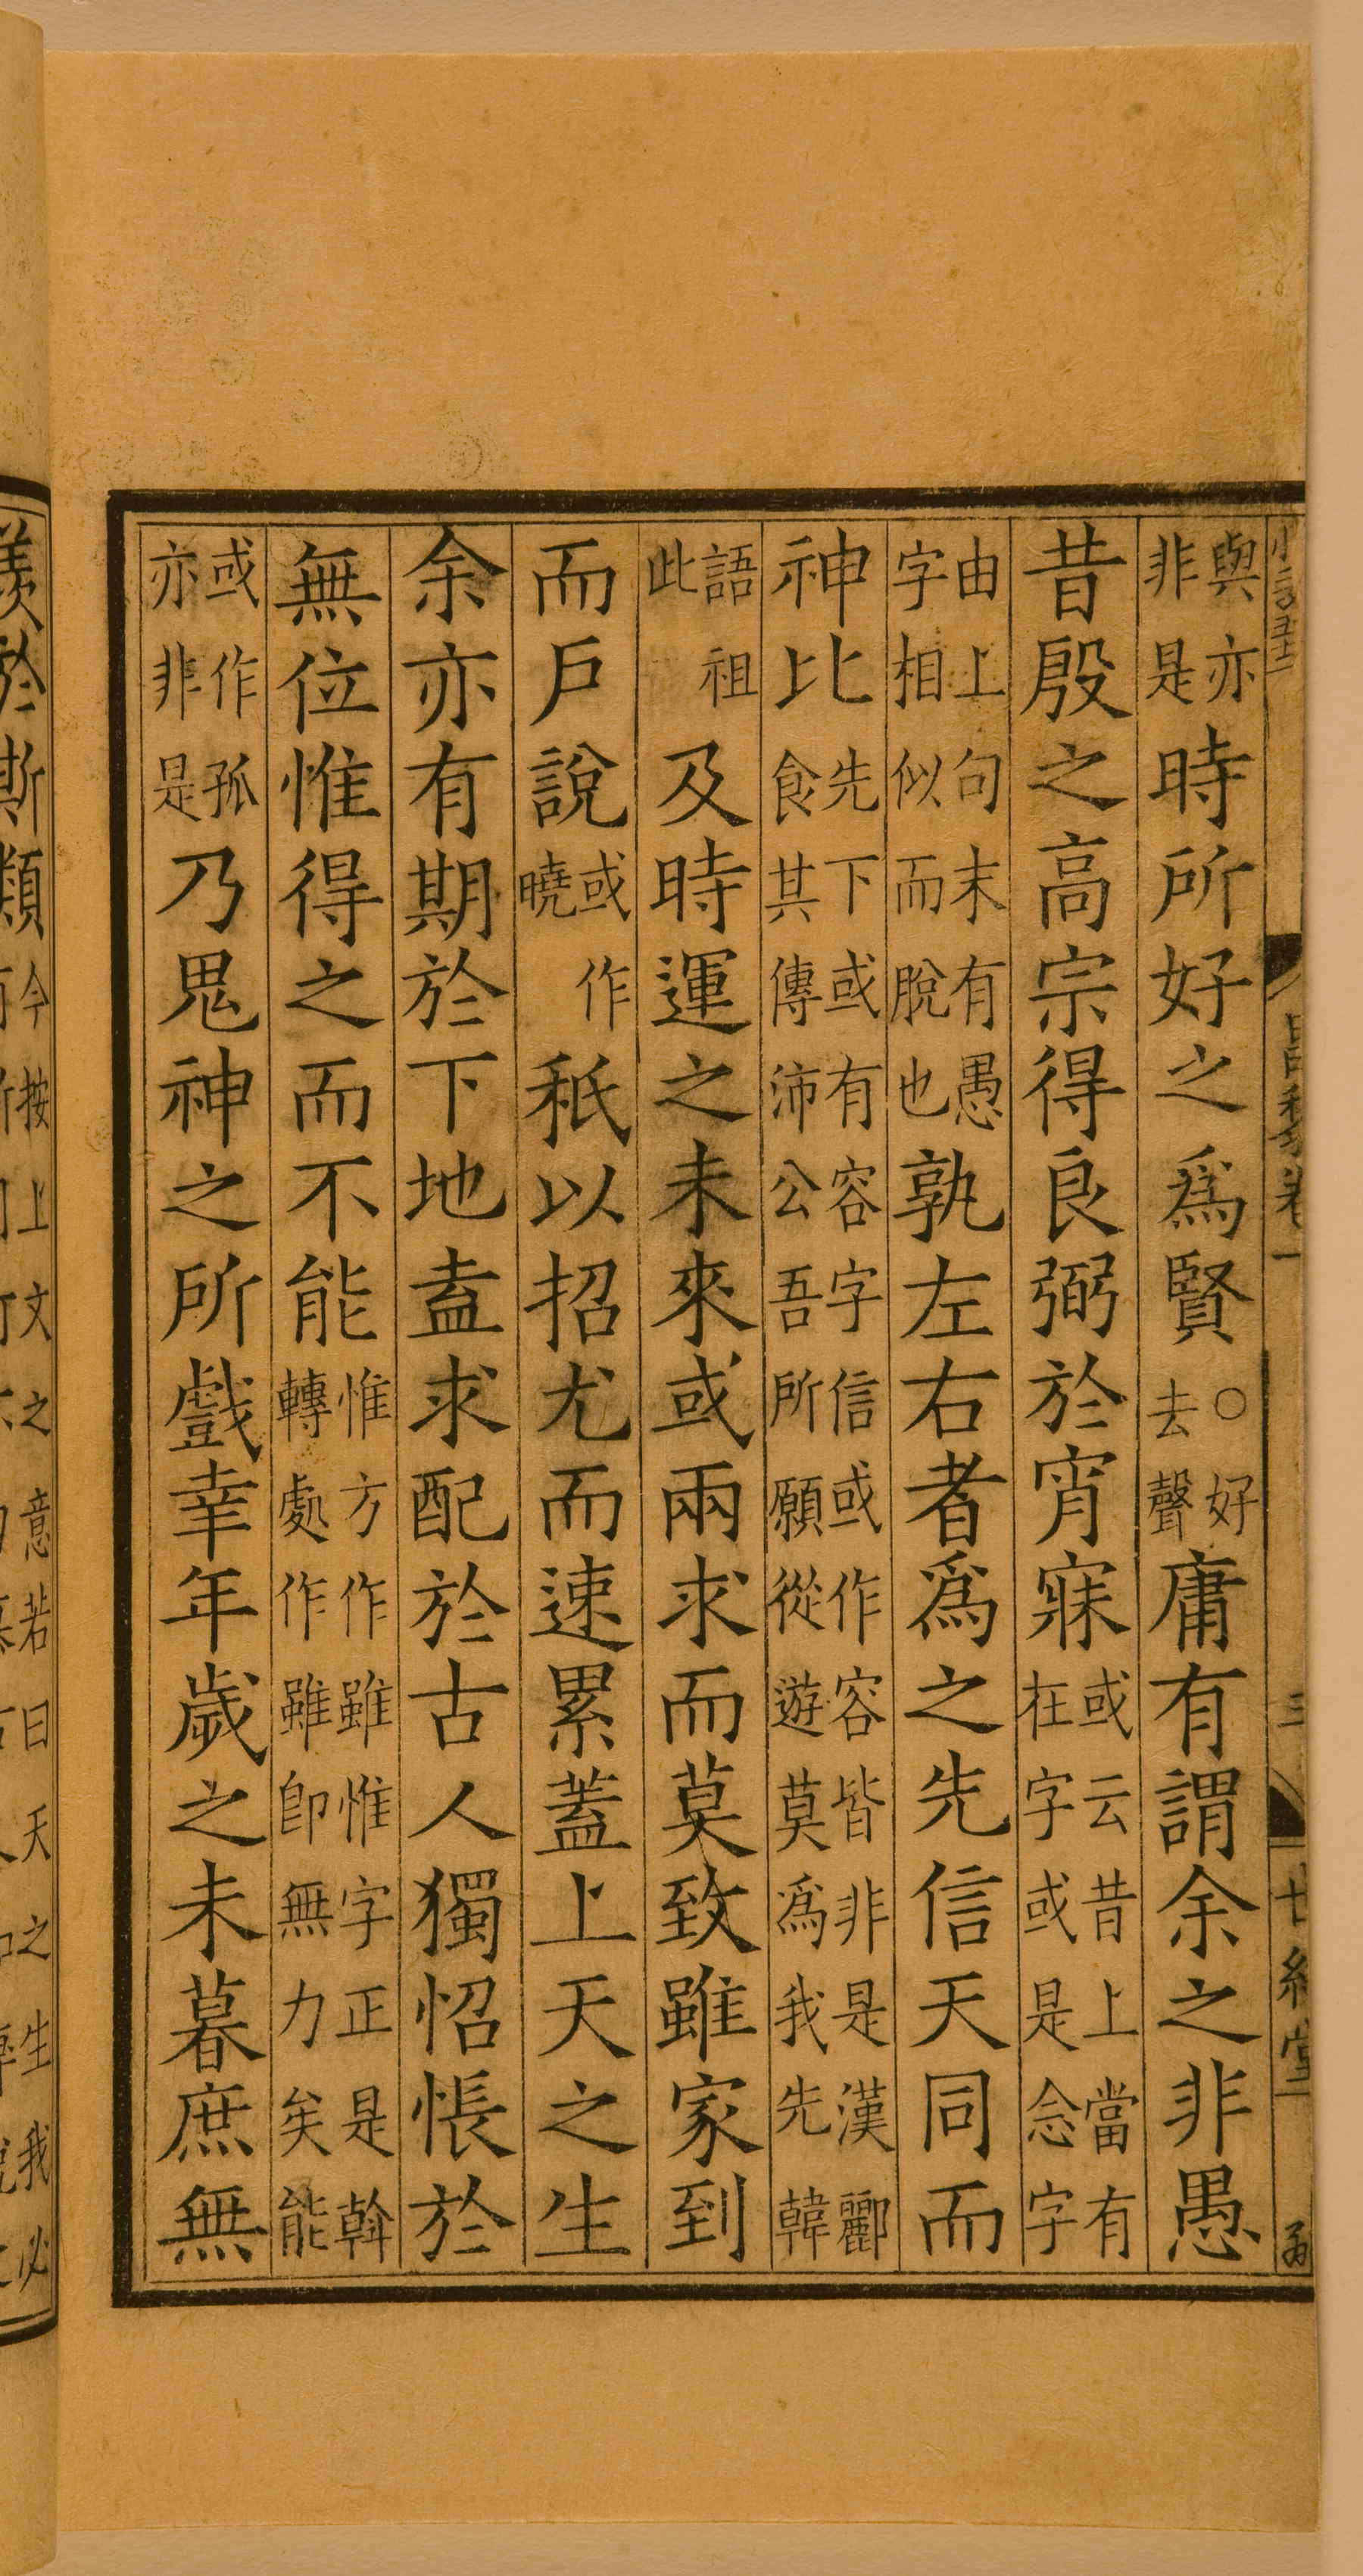 與亦非是時所好之爲賢○好去聲庸有謂余之非愚
昔殷之高宗得良弼於宵寐或云昔上當有在字或是念字
由上句末有愚字相似而脫也孰左右者爲之先信天同而
神比先下或有容字信或作容皆非是漢酈食其傳沛公吾所願從遊莫爲我先韓
語祖此及時運之未來或兩求而莫致雖家到
而戶說或作曉秖以招尤而速累蓋上天之生
余亦有期於下地盍求配於古人獨怊悵於
無位惟得之而不能惟方作雖惟字正是斡轉處作雖卽無力矣能
或作孤亦非是乃鬼神之所戲幸年歲之未暮庶無
三
世綵堂
今按上文之意若曰天之生我必